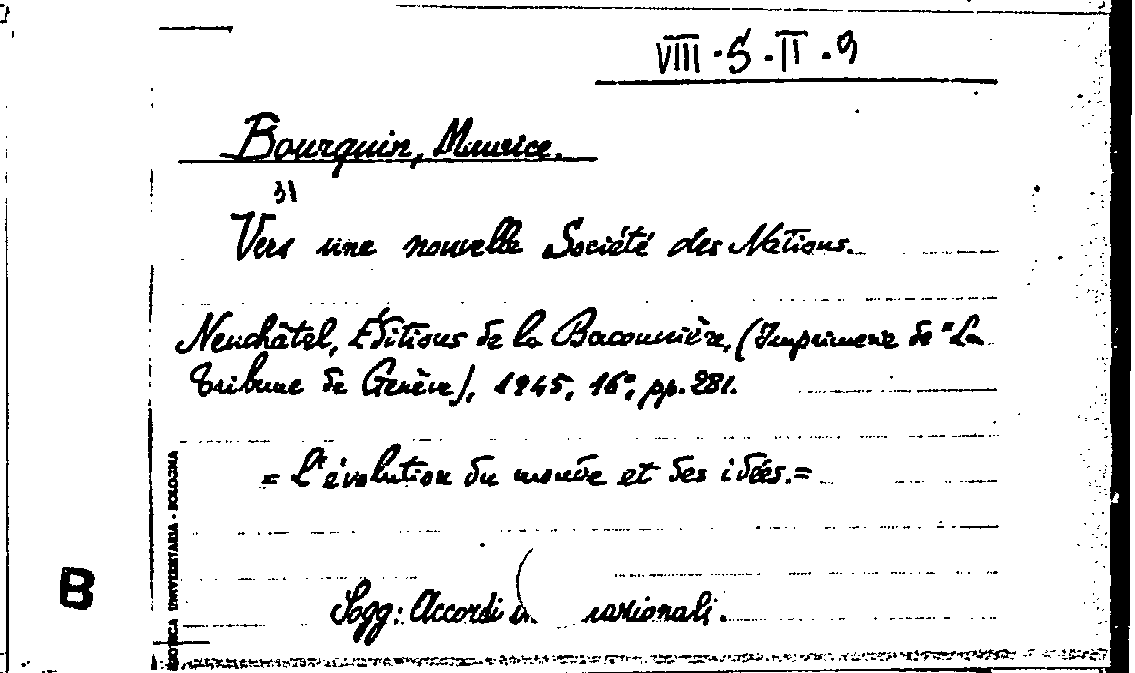 VIII · S · II · 9
Bourquin, Maurice.
31
Vers une nouvelle Société des Nations.
Neuchâtel, Éditions de la Baconnière, (Imprimerie de "La
Tribune de Genève), 1945, 16°, pp. 281.
= L'évolution du monde et des idées. =
B
Sogg: Accordi
UNIVERSITARIA - BOLOGNA